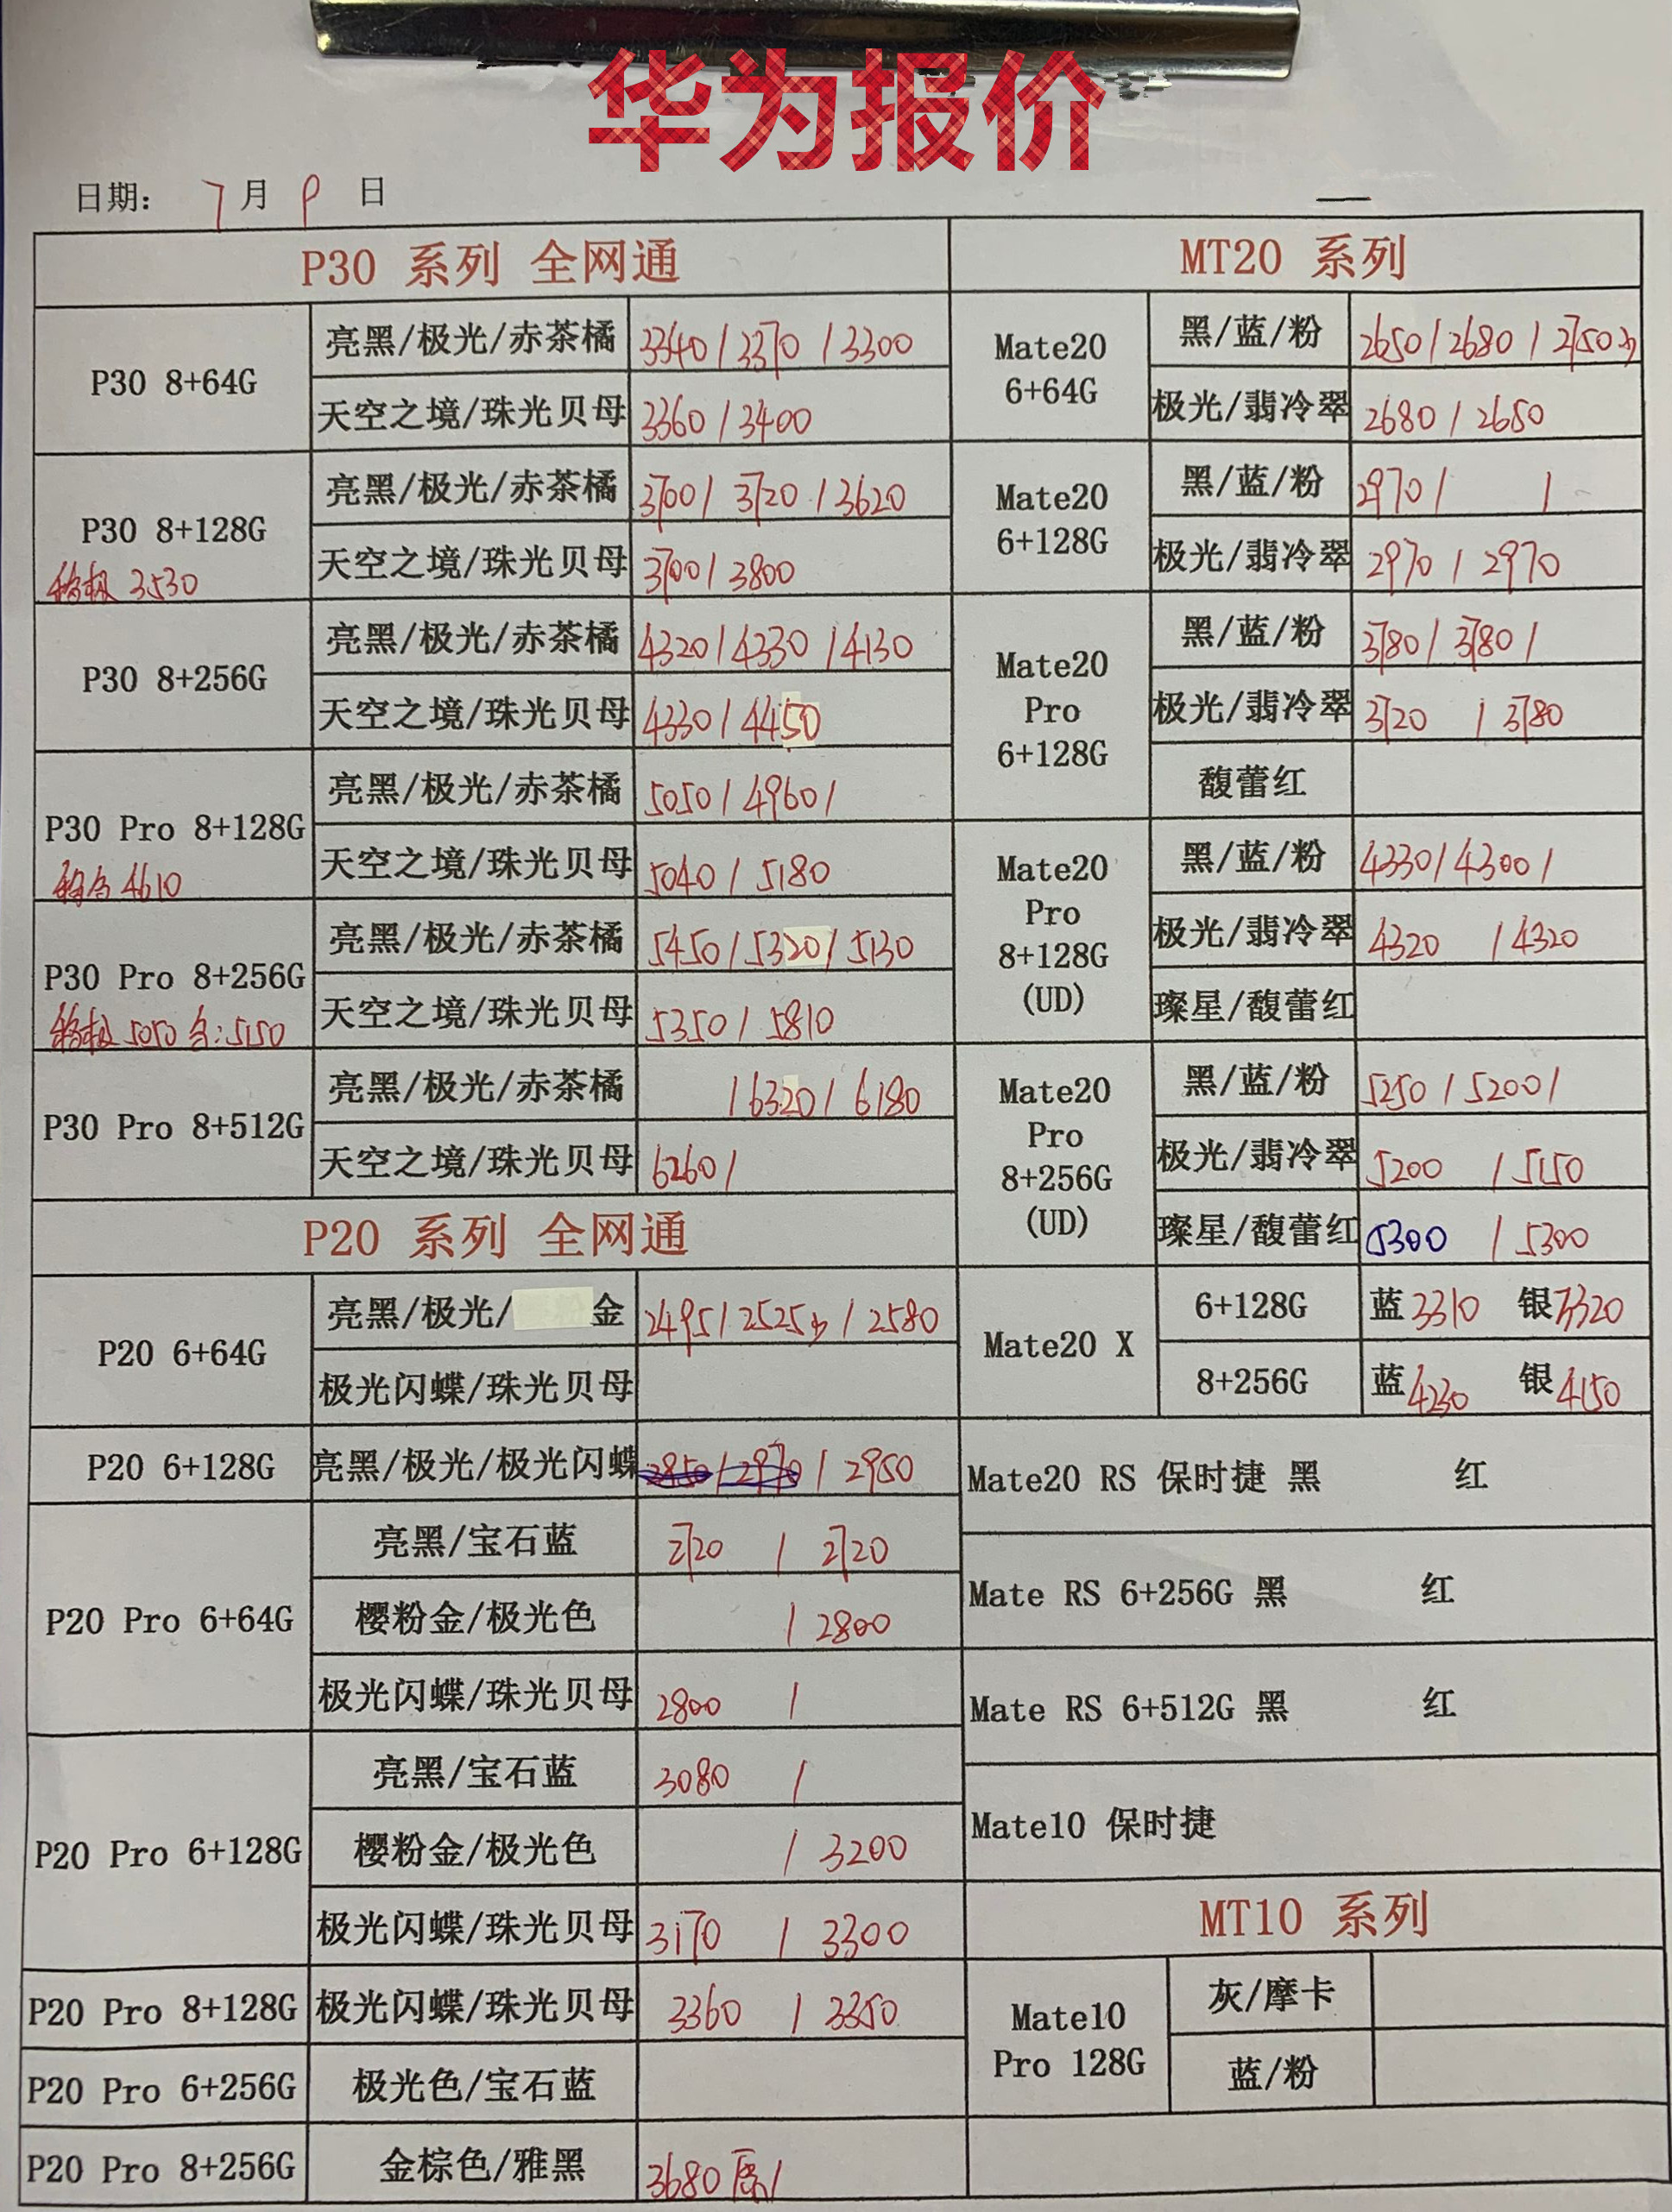 华为报价
日期： 7 月 9 日
P30 系列 全网通
P30 8+64G
亮黑/极光/赤茶橘 3340 / 3370 / 3300
天空之境/珠光贝母 3360 / 3400
P30 8+128G
3530
亮黑/极光/赤茶橘 3700 / 3720 / 3620
天空之境/珠光贝母 3700 / 3800
P30 8+256G
亮黑/极光/赤茶橘 4320 / 4330 / 4130
天空之境/珠光贝母 4330 / 4450
P30 Pro 8+128G
4610
亮黑/极光/赤茶橘 5050 / 4960 /
天空之境/珠光贝母 5040 / 5180
P30 Pro 8+256G
5050 5150
亮黑/极光/赤茶橘 5450 / 5320 / 5130
天空之境/珠光贝母 5350 / 5810
P30 Pro 8+512G
亮黑/极光/赤茶橘 / 6320 / 6180
天空之境/珠光贝母 6260 /
P20 系列 全网通
P20 6+64G
亮黑/极光/ 金 2495 / 2525 / 2580
极光闪蝶/珠光贝母
P20 6+128G
亮黑/极光/极光闪蝶 2850 / 2970 / 2950
P20 Pro 6+64G
亮黑/宝石蓝 2720 / 2720
樱粉金/极光色 / 2800
极光闪蝶/珠光贝母 2800 /
P20 Pro 6+128G
亮黑/宝石蓝 3080 /
樱粉金/极光色 / 3200
极光闪蝶/珠光贝母 3170 / 3300
P20 Pro 8+128G
极光闪蝶/珠光贝母 3360 / 3350
P20 Pro 6+256G
极光色/宝石蓝
P20 Pro 8+256G
金棕色/雅黑 3680 /
MT20 系列
Mate20
6+64G
黑/蓝/粉 2650 / 2680 / 2750
极光/翡冷翠 2680 / 2650
Mate20
6+128G
黑/蓝/粉 2970 / /
极光/翡冷翠 2970 / 2970
Mate20
Pro
6+128G
黑/蓝/粉 3780 / 3780 /
极光/翡冷翠 3720 / 3780
馥蕾红
Mate20
Pro
8+128G
(UD)
黑/蓝/粉 4330 / 4300 /
极光/翡冷翠 4320 / 4320
璨星/馥蕾红
Mate20
Pro
8+256G
(UD)
黑/蓝/粉 5250 / 5200 /
极光/翡冷翠 5200 / 5150
璨星/馥蕾红 5300 / 5300
Mate20 X
6+128G 蓝 3310 银 3320
8+256G 蓝 4230 银 4150
Mate20 RS 保时捷 黑 红
Mate RS 6+256G 黑 红
Mate RS 6+512G 黑 红
Mate10 保时捷
MT10 系列
Mate10
Pro 128G
灰/摩卡
蓝/粉